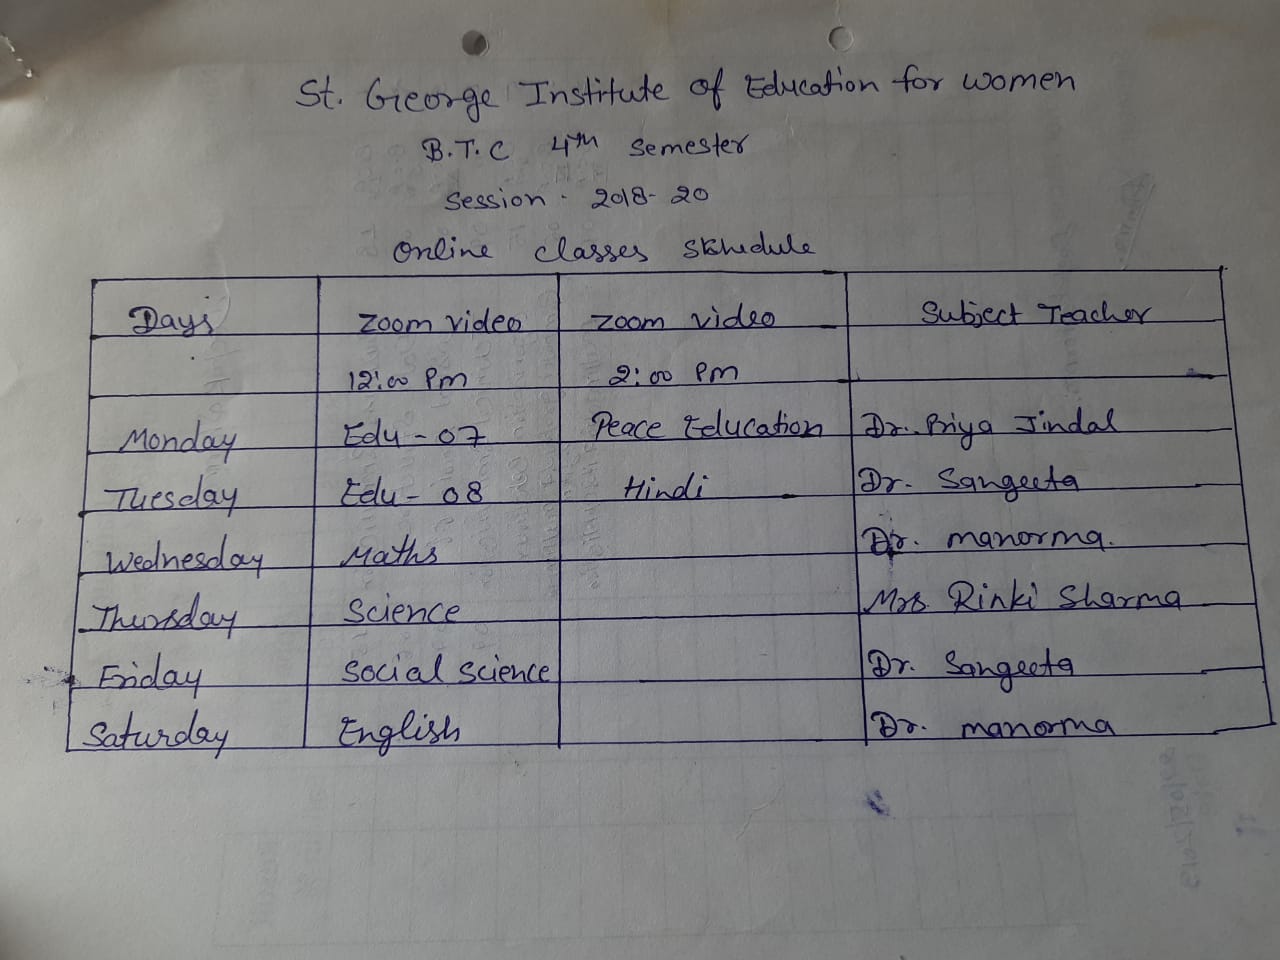 St. George Institute of Education for women
B.T.C 4th Semester
Session - 2018-20
Online classes Skhedule
Days Zoom video Zoom video Subject Teacher
12:00 Pm 2:00 Pm
Monday Edu - 07 Peace Education Dr. Priya Jindal
Tuesday Edu - 08 Hindi Dr. Sangeeta
Wednesday Maths Dr. manorma.
Thursday Science Mrs. Rinki Sharma
Friday Social Science Dr. Sangeeta
Saturday English Dr. manorma